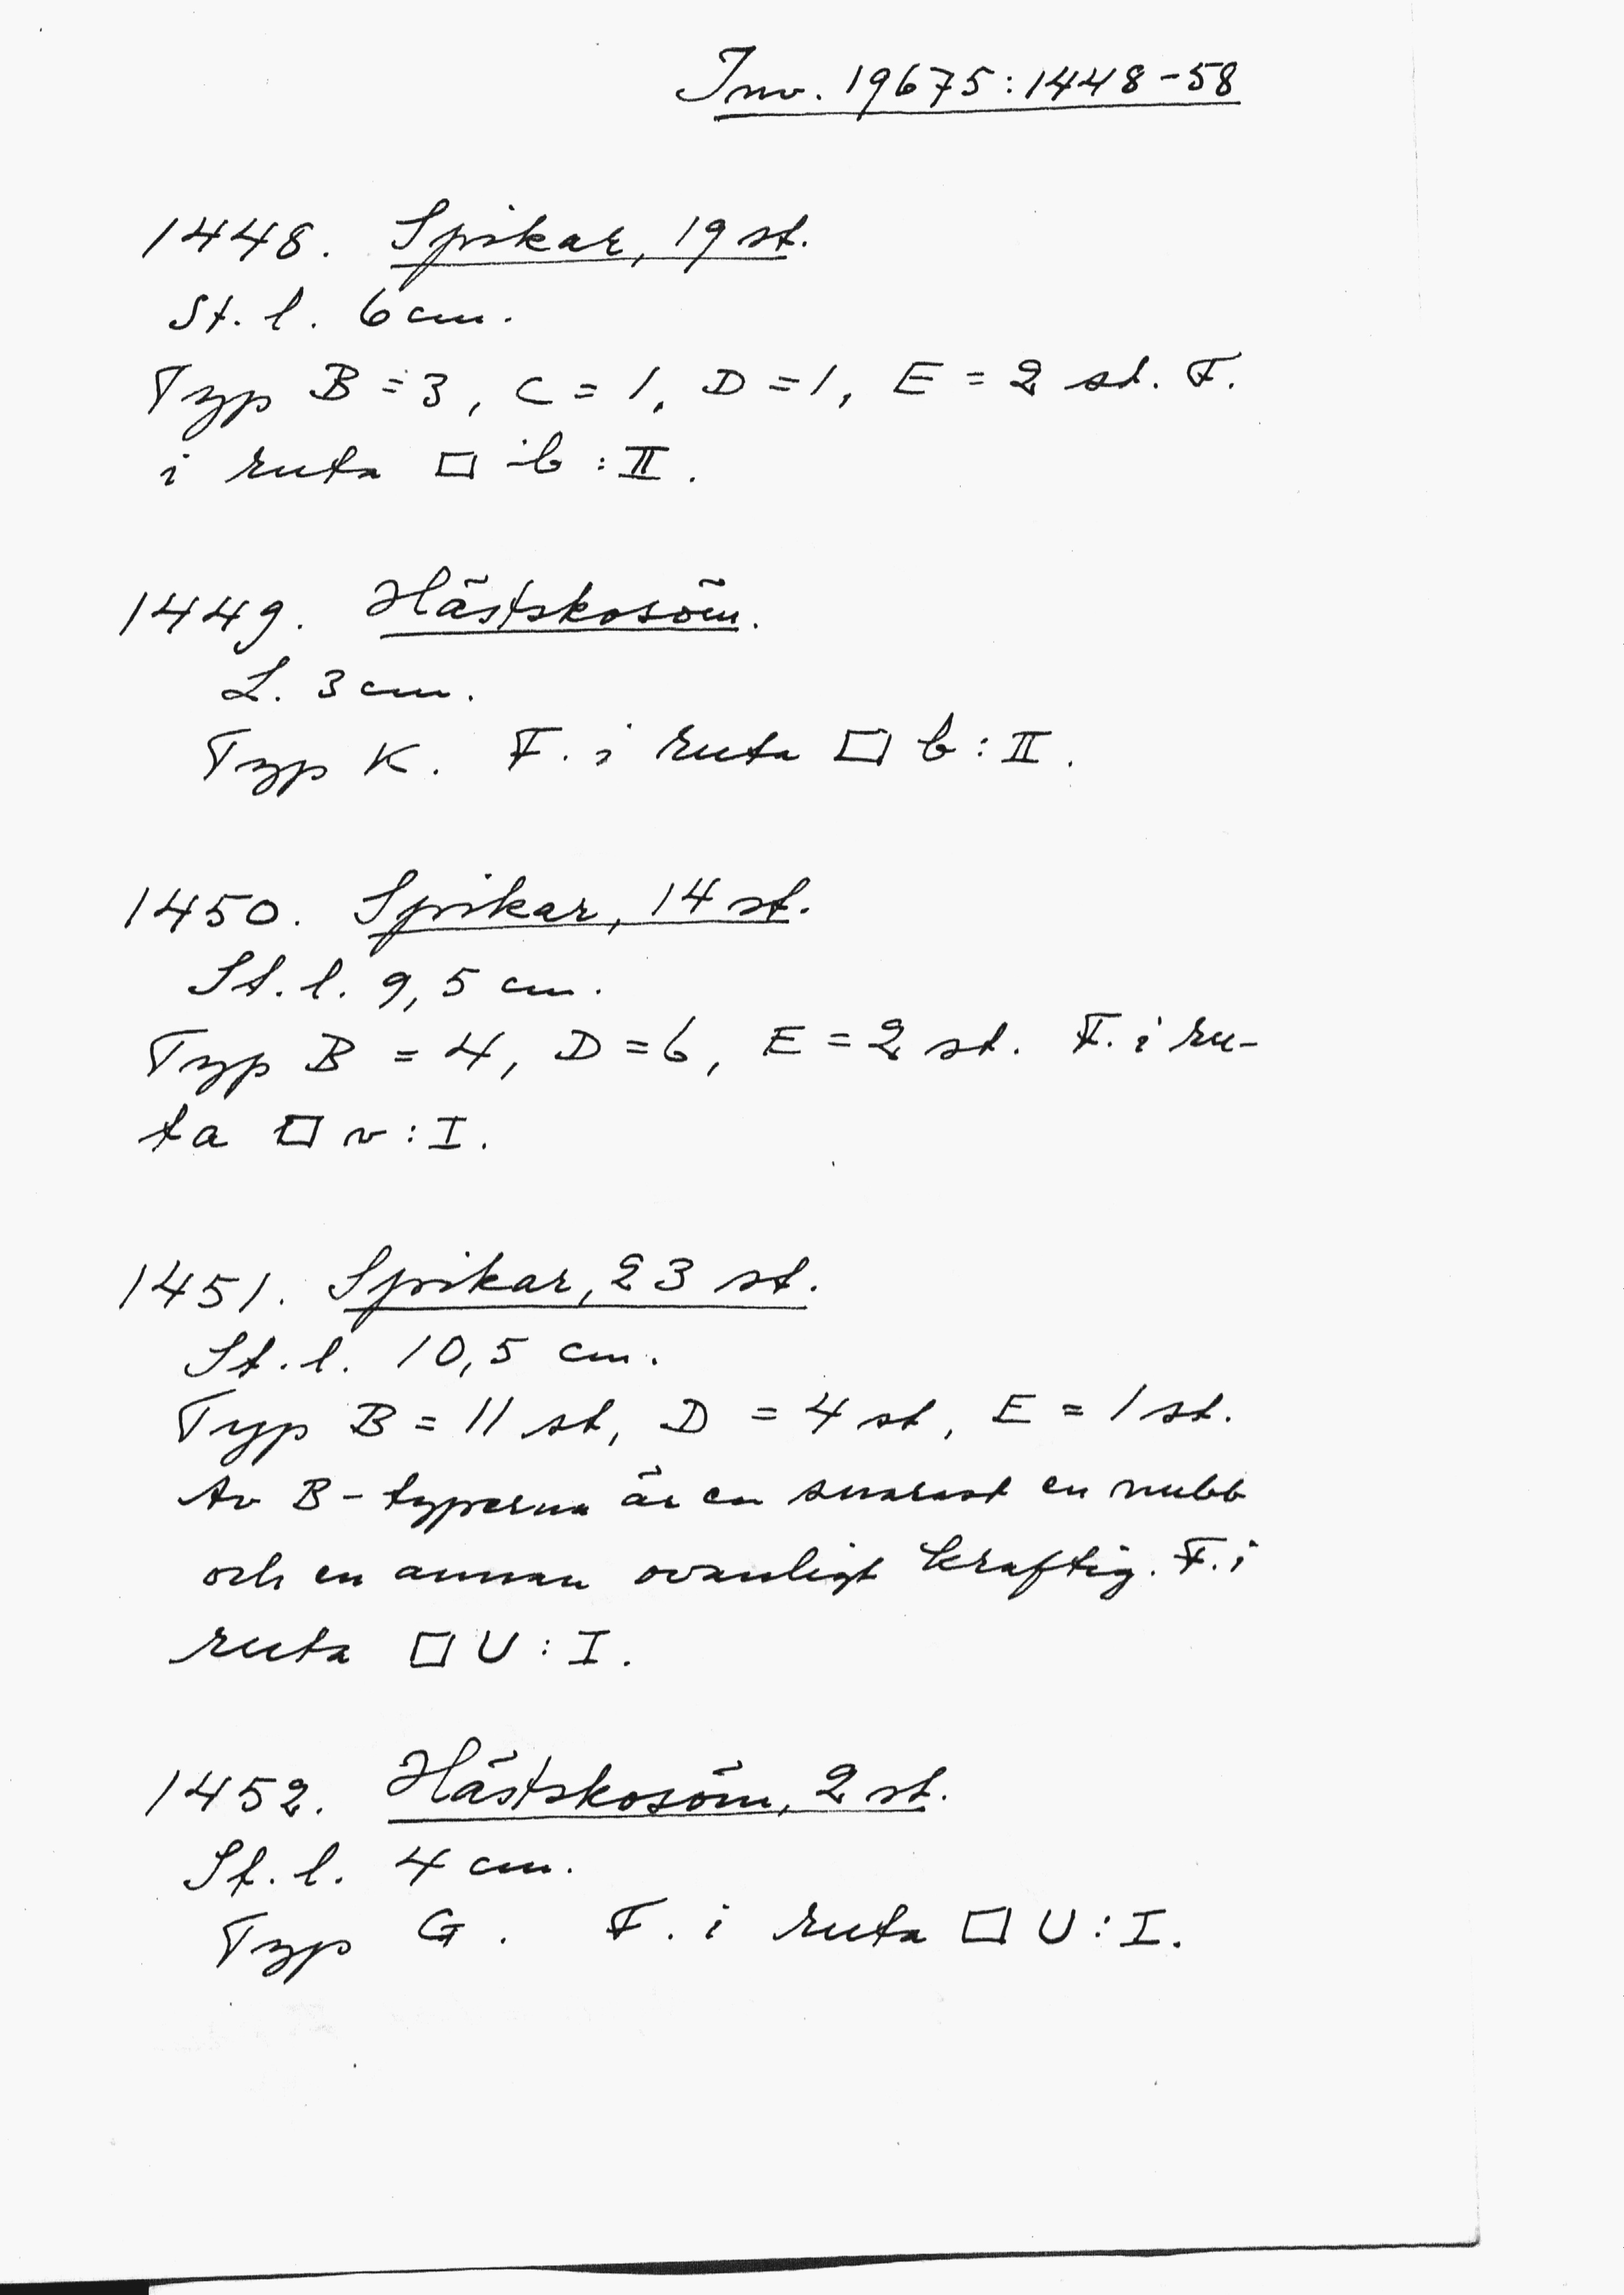 Inv. 19675:1448-58
1448. Spikar, 19 st.
St. l. 6 cm.
Typ B = 3, C = 1, D = 1, E = 2 st. F.
i ruta □ b : II.
1449. Hästskosöm.
L. 3 cm.
Typ K. F. i ruta □ b : II.
1450. Spikar, 14 st.
St. l. 9,5 cm.
Typ B = 4, D = 6, E = 2 st. F. i ru-
ta □ v : I.
1451. Spikar, 23 st.
St. l. 10,5 cm.
Typ B = 11 st, D = 4 st, E = 1 st.
Av B-typerna är en snarast en nubb
och en annan ovanligt kraftig. F. i
ruta □ U : I.
1452. Hästskosöm, 2 st.
St. l. 4 cm.
Typ G. F. i ruta □ U : I.